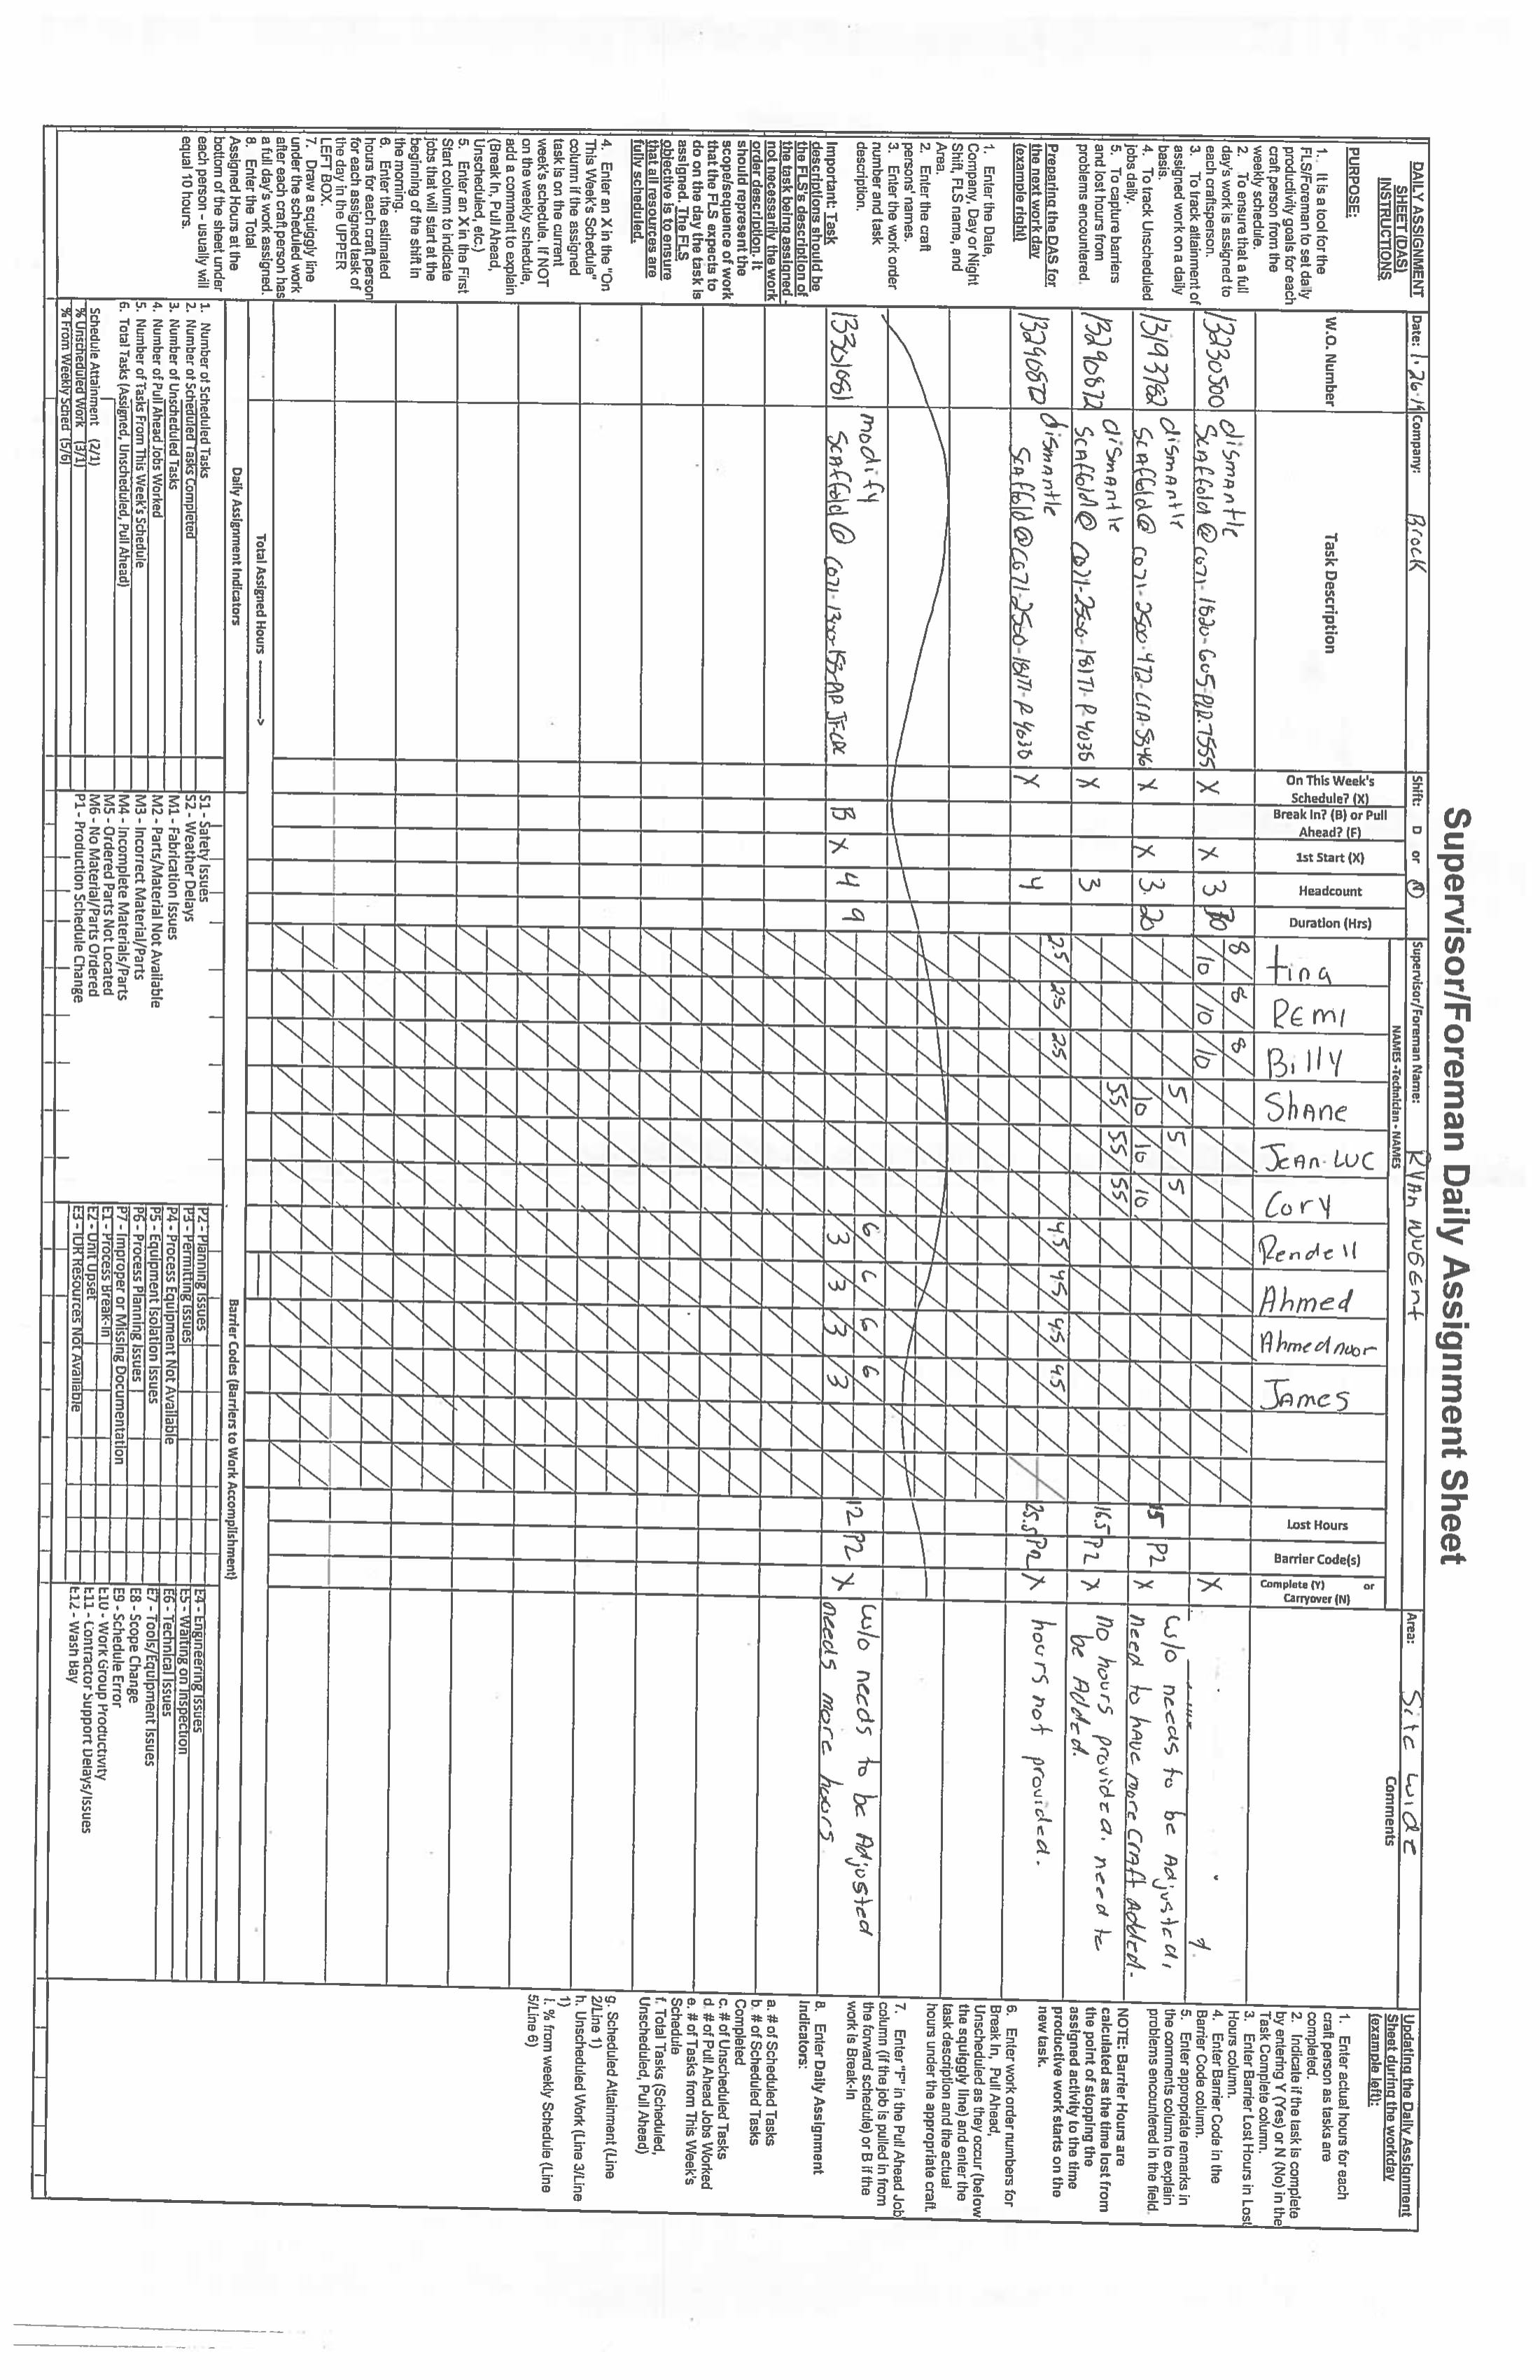 Supervisor/Foreman Daily Assignment Sheet
DAILY ASSIGNMENT
SHEET (DAS)
INSTRUCTIONS
PURPOSE:
1. It is a tool for the
FLS/Foreman to set daily
productivity goals for each
craft person from the
weekly schedule.
2. To ensure that a full
day's work is assigned to
each craftsperson.
3. To track attainment of
assigned work on a daily
basis.
4. To track Unscheduled
jobs daily.
5. To capture barriers
and lost hours from
problems encountered.
Preparing the DAS for
the next work day
(example right)
1. Enter the Date,
Company, Day or Night
Shift, FLS name, and
Area.
2. Enter the craft
persons' names.
3. Enter the work order
number and task
description.
Important: Task
descriptions should be
the FLS's description of
the task being assigned -
not necessarily the work
order description. It
should represent the
scope/sequence of work
that the FLS expects to
do on the day the task is
assigned. The FLS
objective is to ensure
that all resources are
fully scheduled.
4. Enter an X in the "On
This Week's Schedule"
column if the assigned
task is on the current
week's schedule. If NOT
on the weekly schedule,
add a comment to explain
(Break In, Pull Ahead,
Unscheduled, etc.)
5. Enter an X in the First
Start column to indicate
jobs that will start at the
beginning of the shift in
the morning.
6. Enter the estimated
hours for each craft person
for each assigned task of
the day in the UPPER
LEFT BOX.
7. Draw a squiggly line
under the scheduled work
after each craft person has
a full day's work assigned.
8. Enter the Total
Assigned Hours at the
bottom of the sheet under
each person - usually will
equal 10 hours.
Date: 1.26.19 Company: Brock Shift: D or N Supervisor/Foreman Name: RYAn NUGEnt Area: Site wide
NAMES -Technician - NAMES
W.O. Number Task Description On This Week's Schedule? (X) Break In? (B) or Pull Ahead? (F) 1st Start (X) Headcount Duration (Hrs) Lost Hours Barrier Code(s) Complete (Y) or Carryover (N) Comments
Remi Billy Shane Jean-Luc Cory Rendell Ahmed Ahmednoor James
dismantle 8 8 8
13230500 Scaffold @ C071-1820-605-PLR.7555 X X 3 30 10 10 10 X
dismantle 5 5 5 w/o needs to be Adjusted,
13193782 Scaffold@ X X 3 20 10 10 10 15 P2 X need to have more craft Added.
dismantle 55 55 55 no hours provided. need to
13290872 Scaffold@ C071-2500-181T1-P-4038 X 3 16.5 P2 X be Added.
dismantle 2.5 2.5 2.5 4.5 4.5 4.5 4.5
Scaffold@C071-2500-181T1-P-4038 X 4 25.5 P2 X hours not provided.
modify 6 6 6 6 w/o needs to be Adjusted
13301081 Scaffold @ B X 4 9 3 3 3 3 12 P2 X needs more hours
Total Assigned Hours ---------->
Daily Assignment Indicators
1. Number of Scheduled Tasks
2. Number of Scheduled Tasks Completed
3. Number of Unscheduled Tasks
4. Number of Pull Ahead Jobs Worked
5. Number of Tasks From This Week's Schedule
6. Total Tasks (Assigned, Unscheduled, Pull Ahead)
Schedule Attainment (2/1)
% Unscheduled Work (3/1)
% From Weekly Sched (5/6)
Barrier Codes (Barriers to Work Accomplishment)
S1 - Safety Issues
S2 - Weather Delays
M1 - Fabrication Issues
M2 - Parts/Material Not Available
M3 - Incorrect Material/Parts
M4 - Incomplete Materials/Parts
M5 - Ordered Parts Not Located
M6 - No Material/Parts Ordered
P1 - Production Schedule Change
P2 - Planning Issues
P3 - Permitting Issues
P4 - Process Equipment Not Available
P5 - Equipment Isolation Issues
P6 - Process Planning Issues
P7 - Improper or Missing Documentation
E1 - Process Break-In
E2 - Unit Upset
E3 - IOR Resources Not Available
E4 - Engineering Issues
E5 - Waiting on Inspection
E6 - Technical Issues
E7 - Tools/Equipment Issues
E8 - Scope Change
E9 - Schedule Error
E10 - Work Group Productivity
E11 - Contractor Support Delays/Issues
E12 - Wash Bay
Updating the Daily Assignment
Sheet during the workday
(example left):
1. Enter actual hours for each
craft person as tasks are
completed.
2. Indicate if the task is complete
by entering Y (Yes) or N (No) in the
Task Complete column.
3. Enter Barrier Lost Hours in Lost
Hours column.
4. Enter Barrier Code in the
Barrier Code column.
5. Enter appropriate remarks in
the comments column to explain
problems encountered in the field.
NOTE: Barrier Hours are
calculated as the time lost from
the point of stopping the
assigned activity to the time
productive work starts on the
new task.
6. Enter work order numbers for
Break In, Pull Ahead,
Unscheduled as they occur (below
the squiggly line) and enter the
task description and the actual
hours under the appropriate craft.
7. Enter "F" in the Pull Ahead Job
column (if the job is pulled in from
the forward schedule) or B if the
work is Break-In
8. Enter Daily Assignment
Indicators:
a. # of Scheduled Tasks
b. # of Scheduled Tasks
Completed
c. # of Unscheduled Tasks
d. # of Pull Ahead Jobs Worked
e. # of Tasks from This Week's
Schedule
f. Total Tasks (Scheduled,
Unscheduled, Pull Ahead)
g. Scheduled Attainment (Line
2/Line 1)
h. Unscheduled Work (Line 3/Line
1)
I. % from weekly Schedule (Line
5/Line 6)